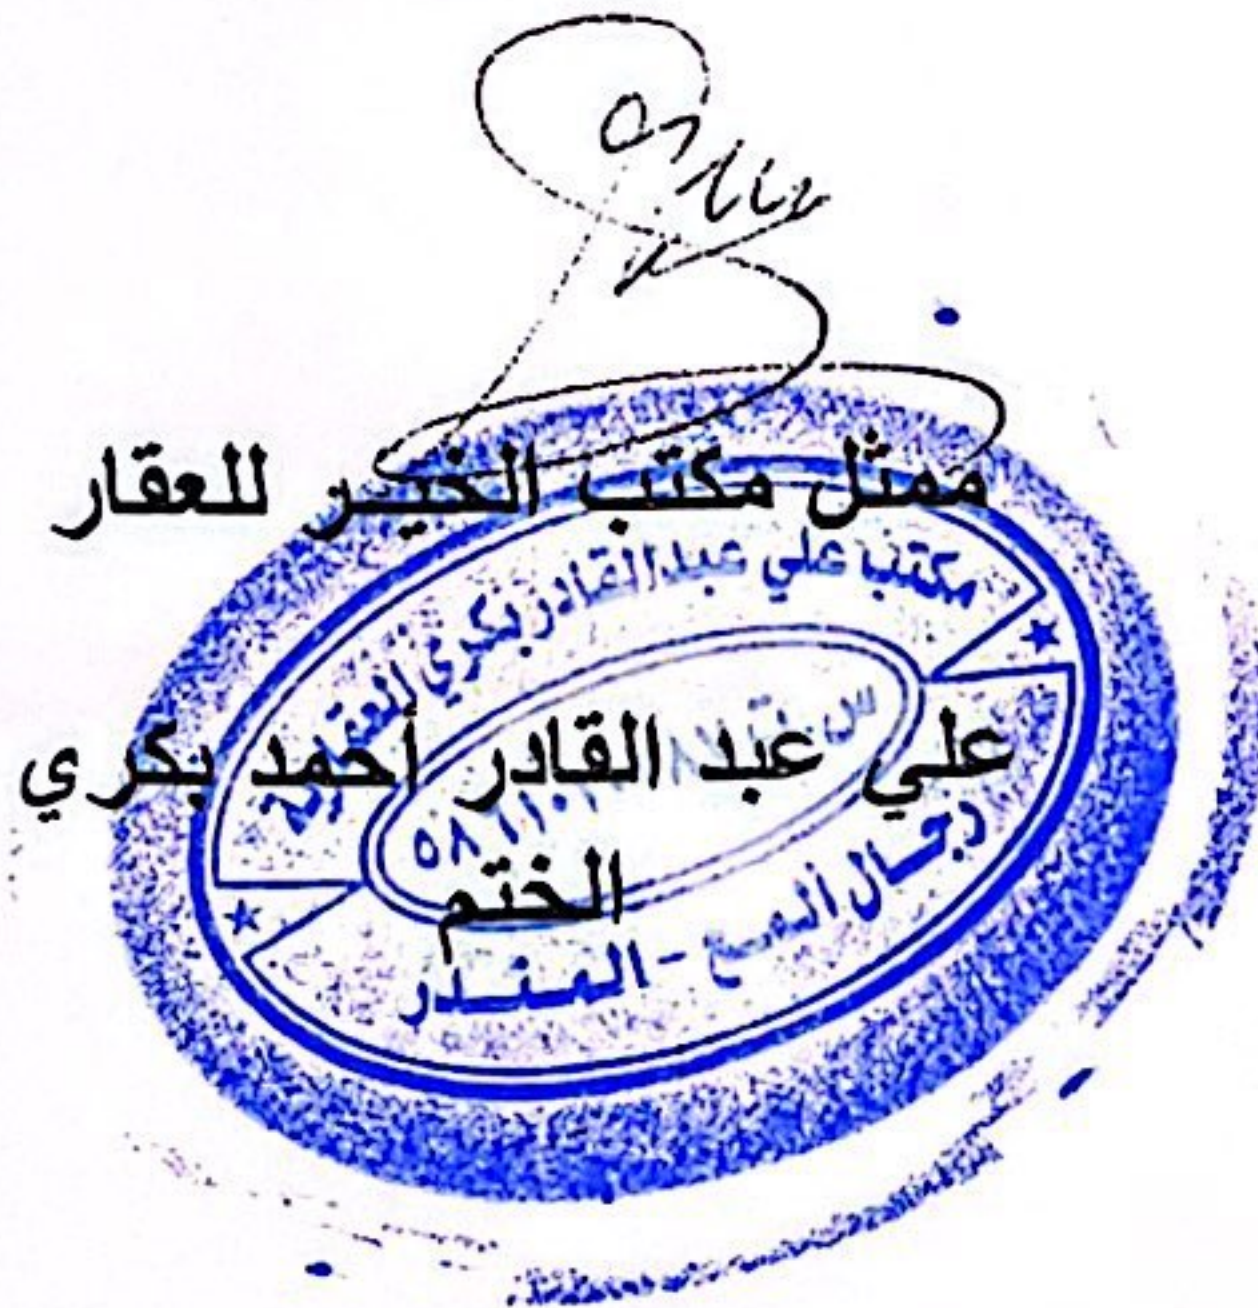 ممثل مكتب الخير للعقار
مكتب علي عبد القادر بكري للعقارية
علي عبد القادر أحمد بكري
الختم
رجال ألمع - المنظر